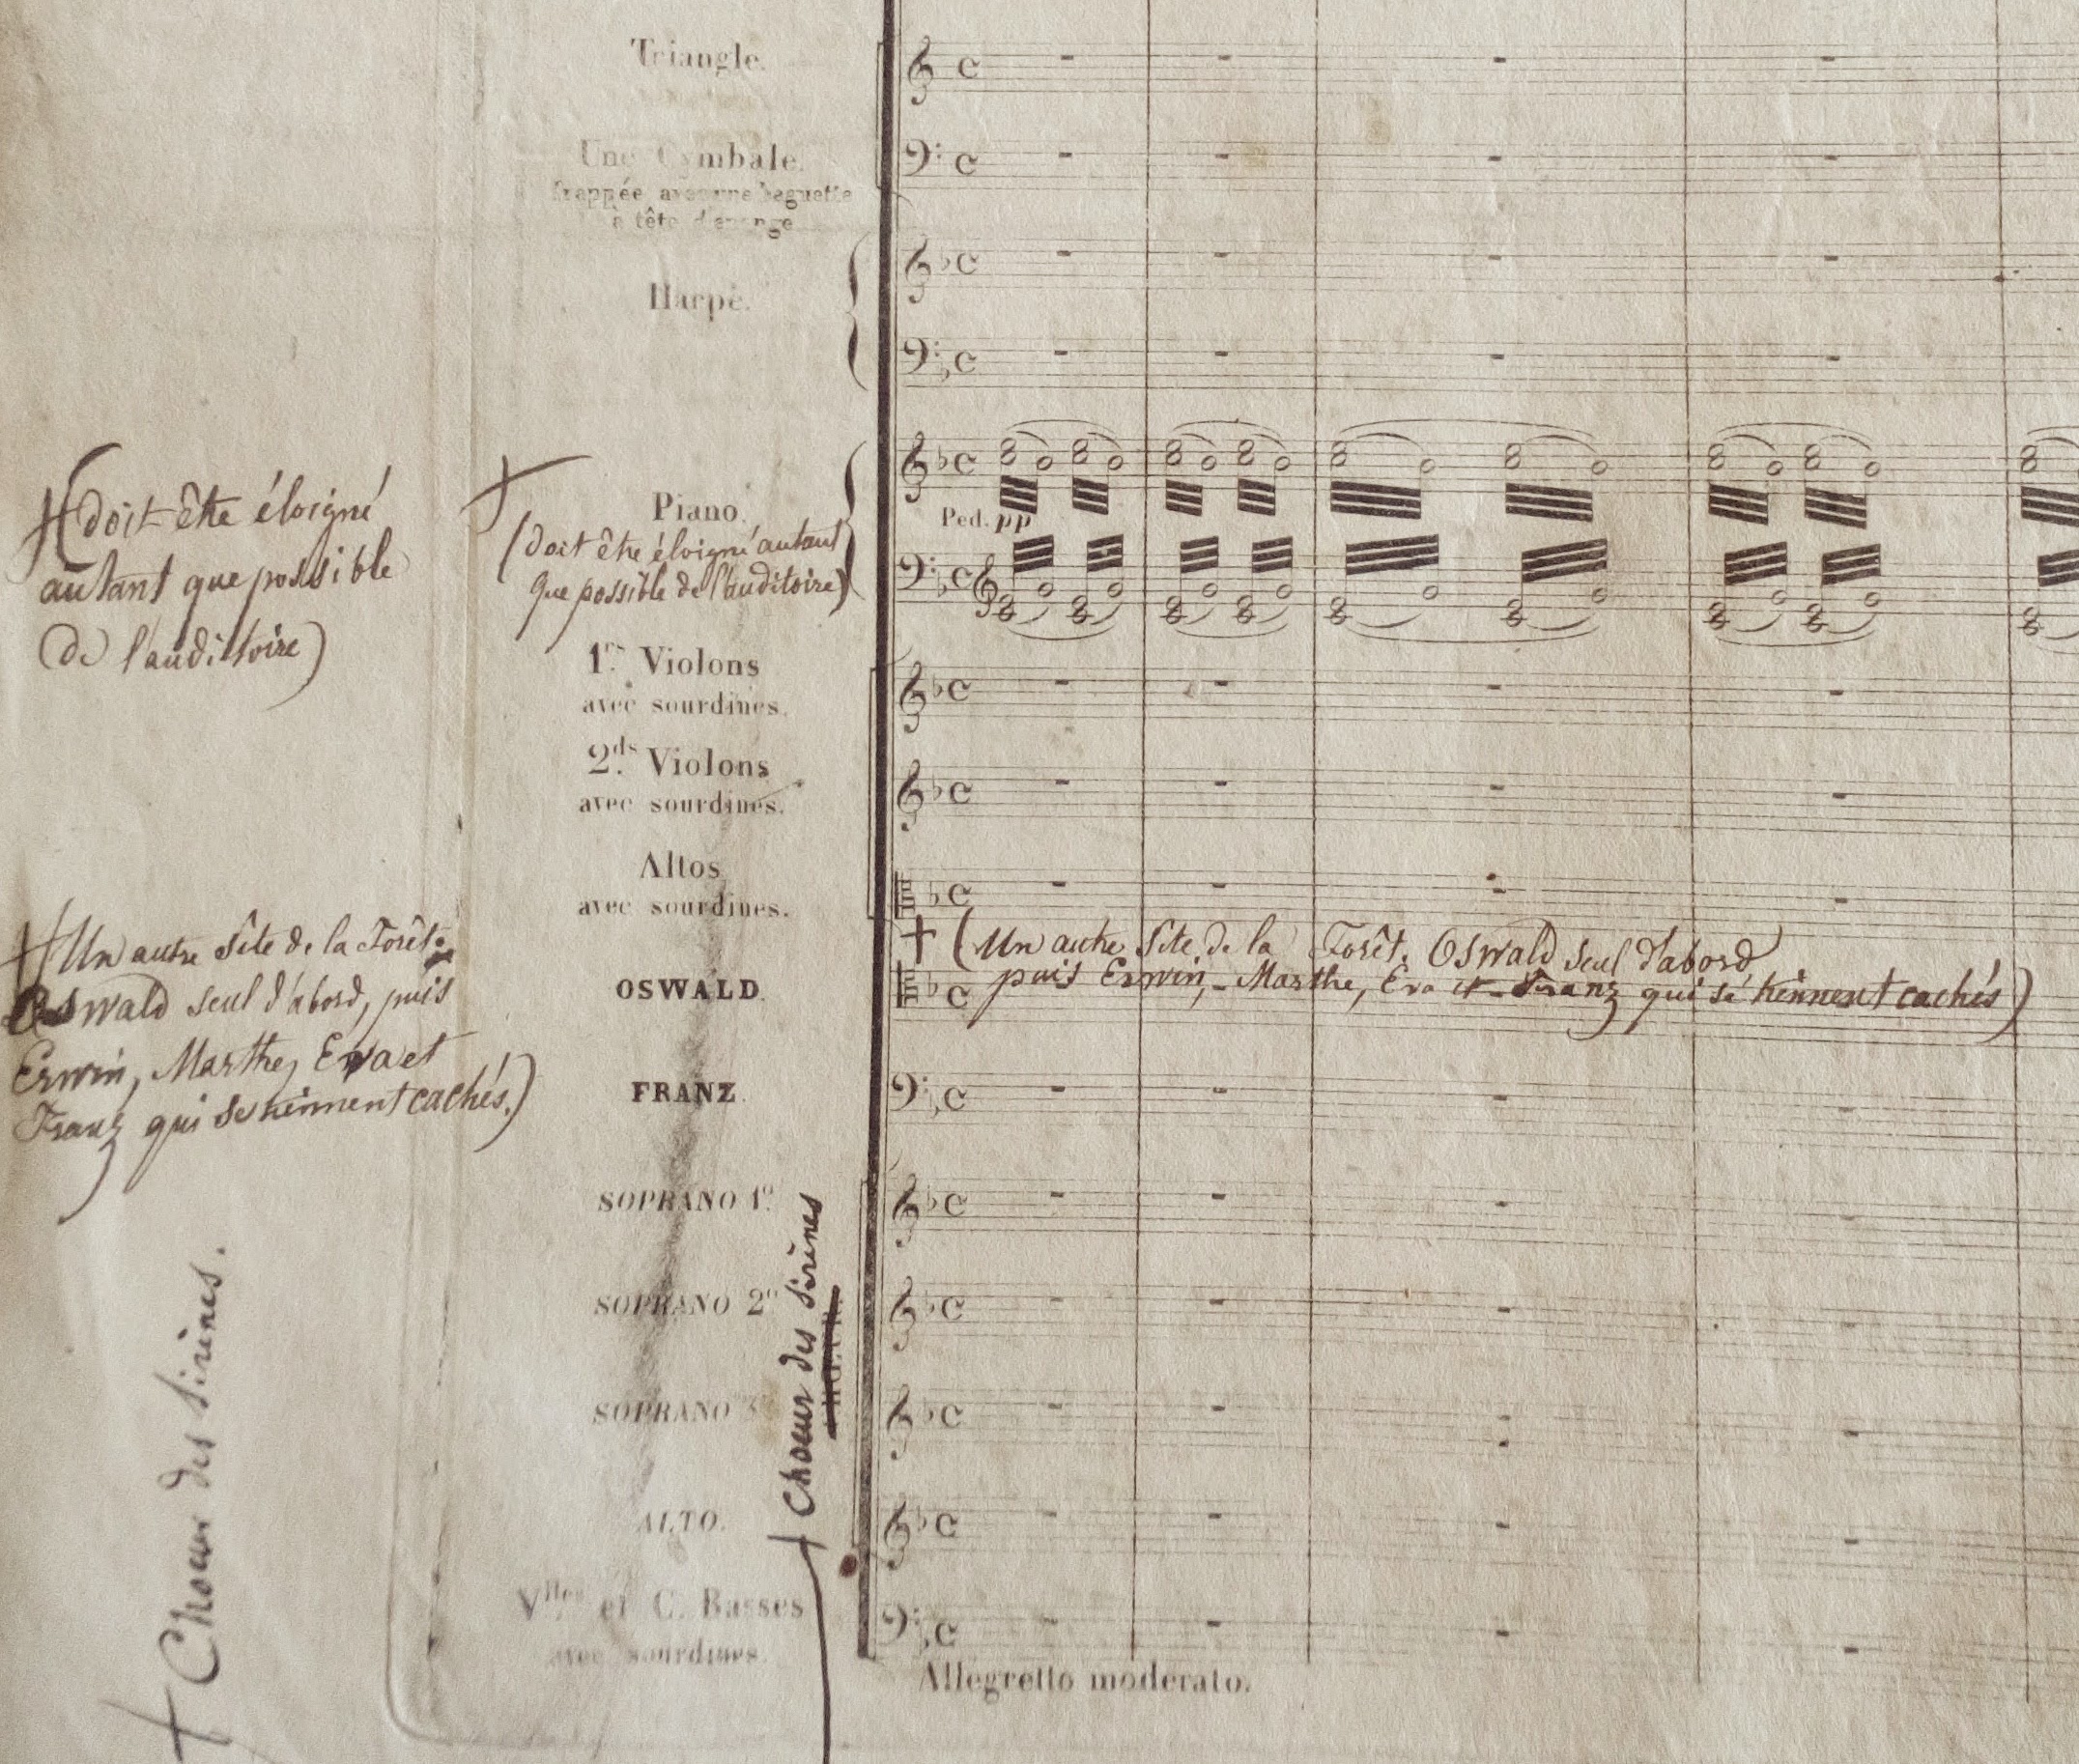 Triangle.
Une Cymbale.
frappée avec une baguette
à tête d'éponge
Harpe.
Piano.
Ped. pp
(doit être éloigné autant
que possible de l'auditoire)
(doit être éloigné
autant que possible
de l'auditoire)
1rs Violons
avec sourdines.
2ds Violons
avec sourdines.
Altos
avec sourdines.
(Un autre Site de la Forêt. Oswald seul d'abord
puis Erwin, Marthe, Eva et Franz qui se tiennent cachés)
Un autre Site de la Forêt
Oswald seul d'abord, puis
Erwin, Marthe, Eva et
Franz qui se tiennent cachés.)
OSWALD.
FRANZ.
SOPRANO 1º.
SOPRANO 2º
SOPRANO 3
ALTO.
Choeur des Sirènes
Choeur des Sirènes.
Vlles et C. Basses
avec sourdines.
Allegretto moderato.